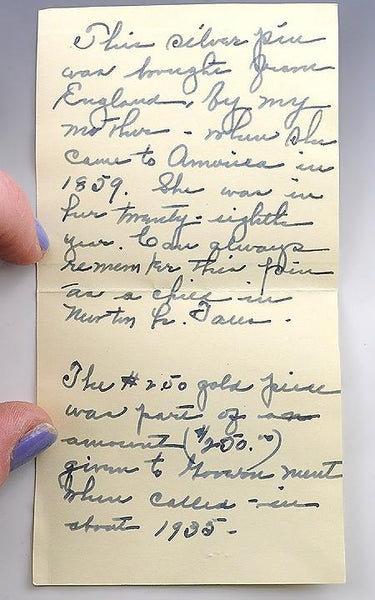 This silver pin
was bought from
England, by my
mother - when she
came to America in
1859. She was in
her twenty-eighth
year. Can always
remember this pin
as a child in
Newton Lr. Falls.
The #250 gold piece
was part of an
amount ($250.⁰⁰)
given to Government
when called-in
about 1935-